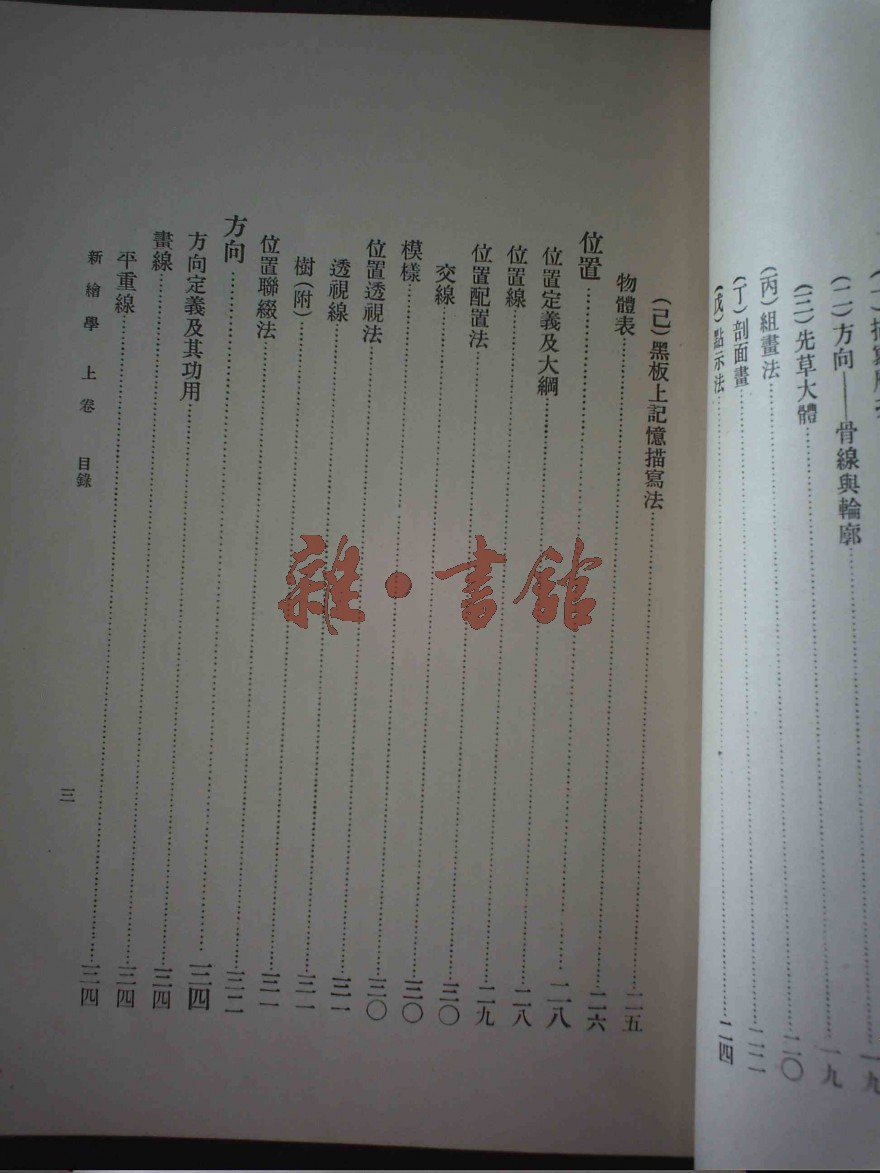 (二)方向——骨線與輪廓……一九
(三)先草大體……一九
(丙)組畫法……二〇
(丁)剖面畫……二二
(戊)點示法……二四
(己)黑板上記憶描寫法……二五
物體表……二六
位置……二八
位置定義及大綱……二八
位置線……二九
位置配置法……三〇
交線……三〇
模樣……三〇
位置透視法……三一
透視線……三一
樹(附)……三一
位置聯綴法……三二
方向……三四
方向定義及其功用……三四
畫線……三四
平重線……三四
新繪學 上卷 目錄
三
雜·書館